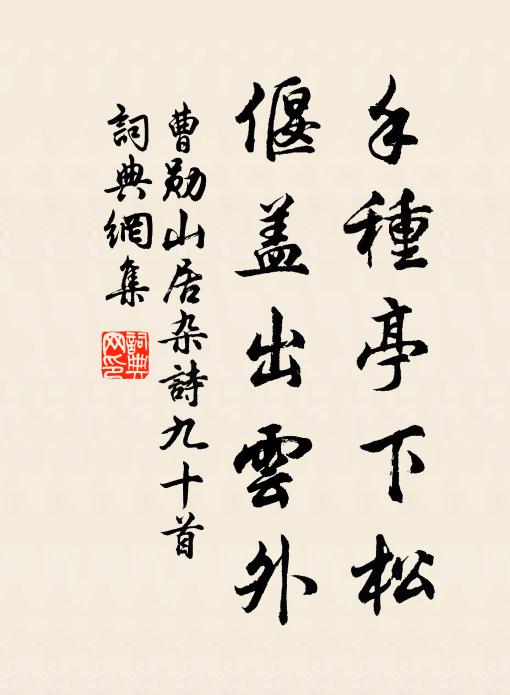 手種亭下松
偃盖出雲外
曹勛山居杂詩九十首
詞典網集
詞典
网印